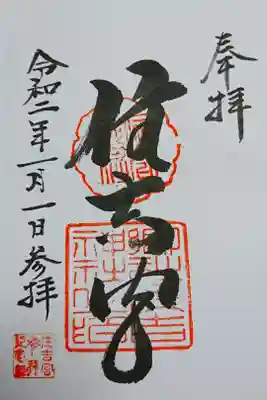 奉拝
住吉宮
令和二年一月一日参拝
住吉宮
参拝